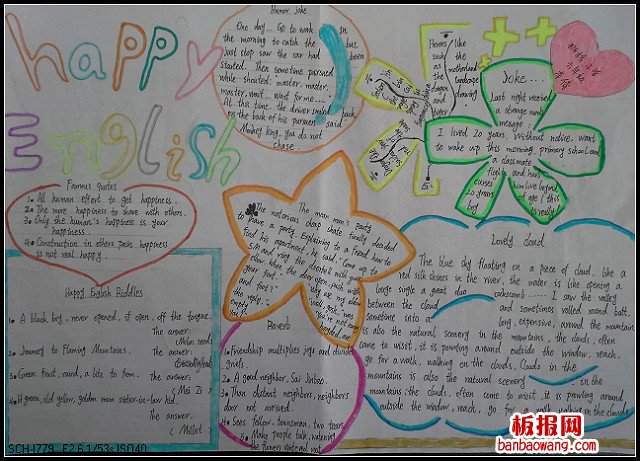 Happy
English
Humor joke
One day... Go to work in
the morning to catch the bus,
just stop saw the car had been
started. Then sometime pursued
while shouted: master, master,
master, wait... wait for me...,
At this time the driver smiled back
on the back of his pursuers said:
Monkey king, you do not
chase.
Famous quotes
1. All human effort to get happiness.
2. The more happiness to share with others.
3. Only the human's happiness is your
happiness.
4. Construction in others pain happiness
is not real happy.
Happy English Riddles
1. A black boy, never opened, if open, off the tongue.
The answer:
(Melon seeds)
2. Journey to Flaming Mountains.
The answer:
3. Green fruit, round, a lite to form.
the answer:
(Mei Zi)
4. H green, old yellow, golden room sister-in-law kid,
the answer:
(Millet)
The man man's Party
The notorious cheap skate finally decided
to have a party. Explaining to a friend how to
find his apartment, he said: "Come up to
5M and ring the doorbell with your
elbow. When the door open, push with
your foot."
"Why use my elbow
and foot?"
"Well, gosh," was
the reply, "You're not coming
empty
Proverb
1. Friendship multiplies joys and divides
griefs.
2. A good neighbor, Sai Jinbao.
3. Than distant neighbors, neighbors
door not arround.
4. Seas fellow-townsman, two tears
5. Make people talk, watering
the flowers watered root.
Here's like
such the
as motherland
the landscape
dragon drawing
and
water
Joke...
Last night received
a strange man
message:
I lived 20 years, without notice, want
to wake up this morning, primary school and
a classmate
fights and han
curses him live before
20 years of age! this
boy is really
Lovely cloud
The blue sky floating on a piece of cloud, like a
red silk shines in the river, the water is like opening a
large single a great duo cockscomb...... I saw the valley
between the cloud, and sometimes rolled round ball,
sometime into a long, expensive, around the mountain
is also the natural scenery in the mountains, the clouds, often
come to visit, it is pawling around outside the window, reach,
go for a walk, walking on the clouds. Clouds in the
mountains is also the natural scenery in the
mountains, the clouds, often come to visit, it is pawling around,
outside the window, reach, go for a walk, walking on the clouds.
SCH-I779 F2.6 1/53s ISO40
板报网
banbaowang.com